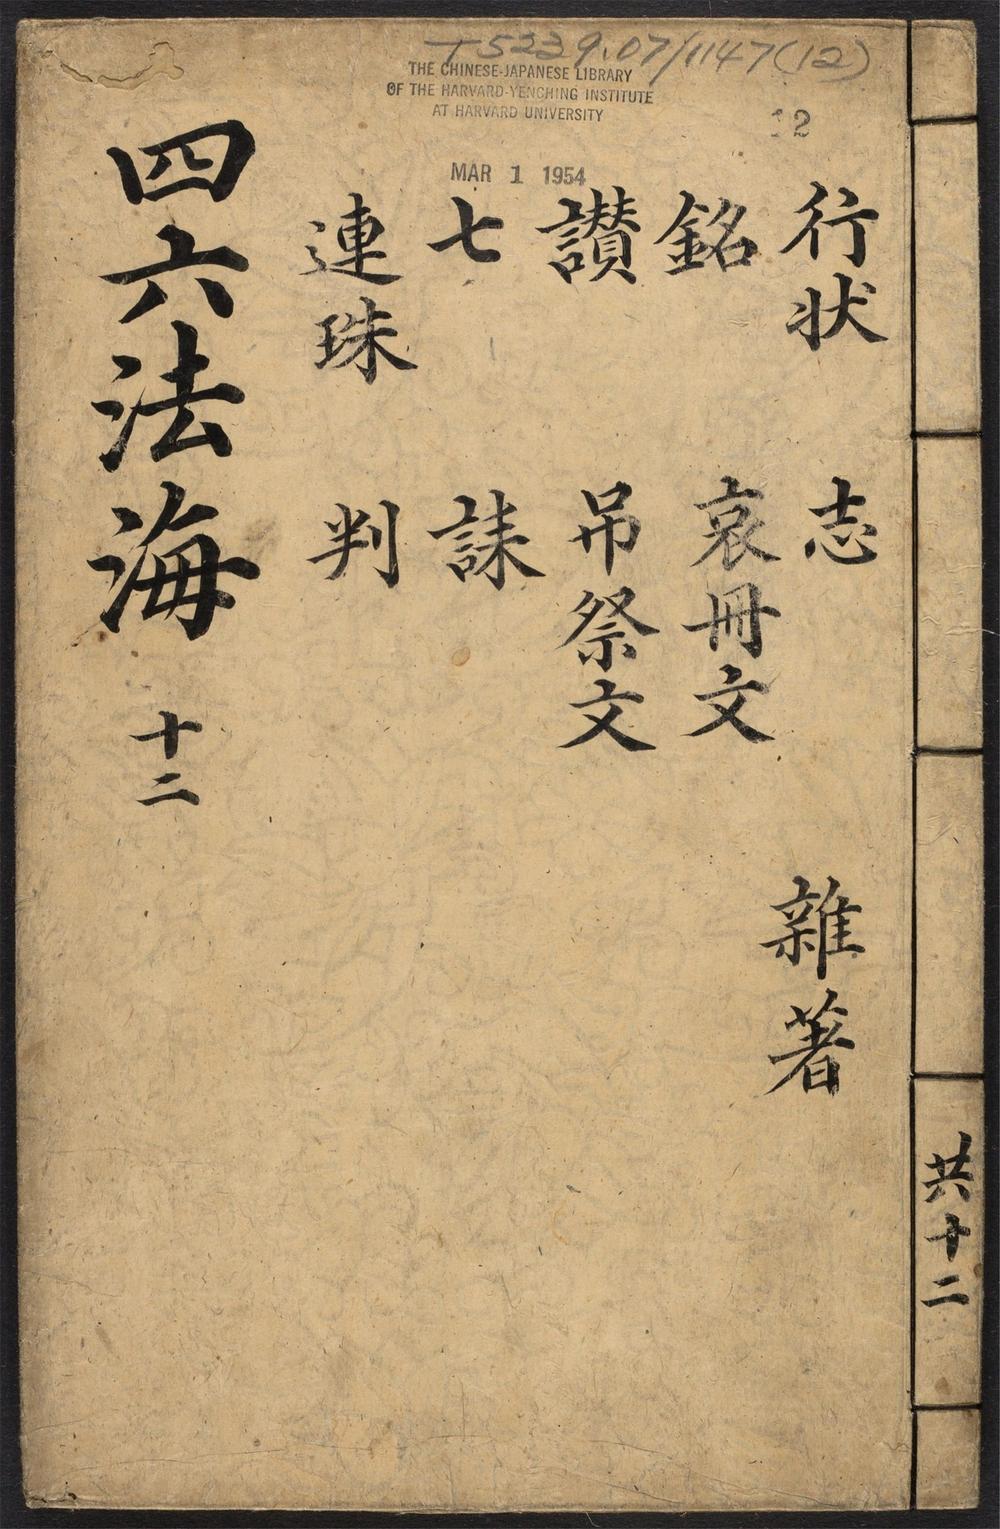 T5239.07/1147(12)
THE CHINESE-JAPANESE LIBRARY
OF THE HARVARD-YENCHING INSTITUTE
AT HARVARD UNIVERSITY
12
MAR 1 1954
行状 志 雜著
銘 哀冊文
讃 吊祭文
七 誄
連珠 判
四六法海 十二
共十二